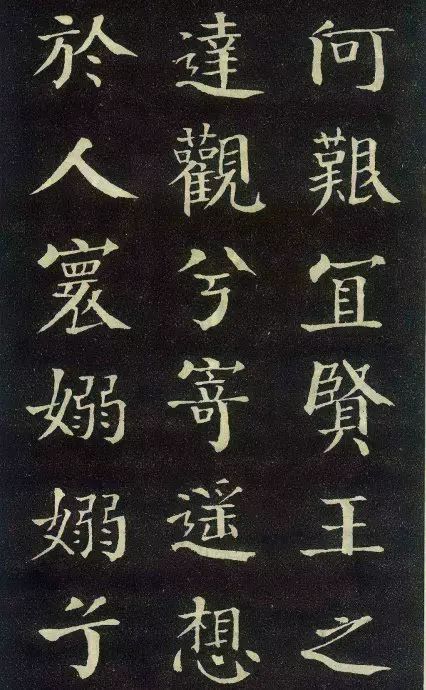 何艱宜賢王之
達觀兮寄遥想
於人寰嫋嫋兮